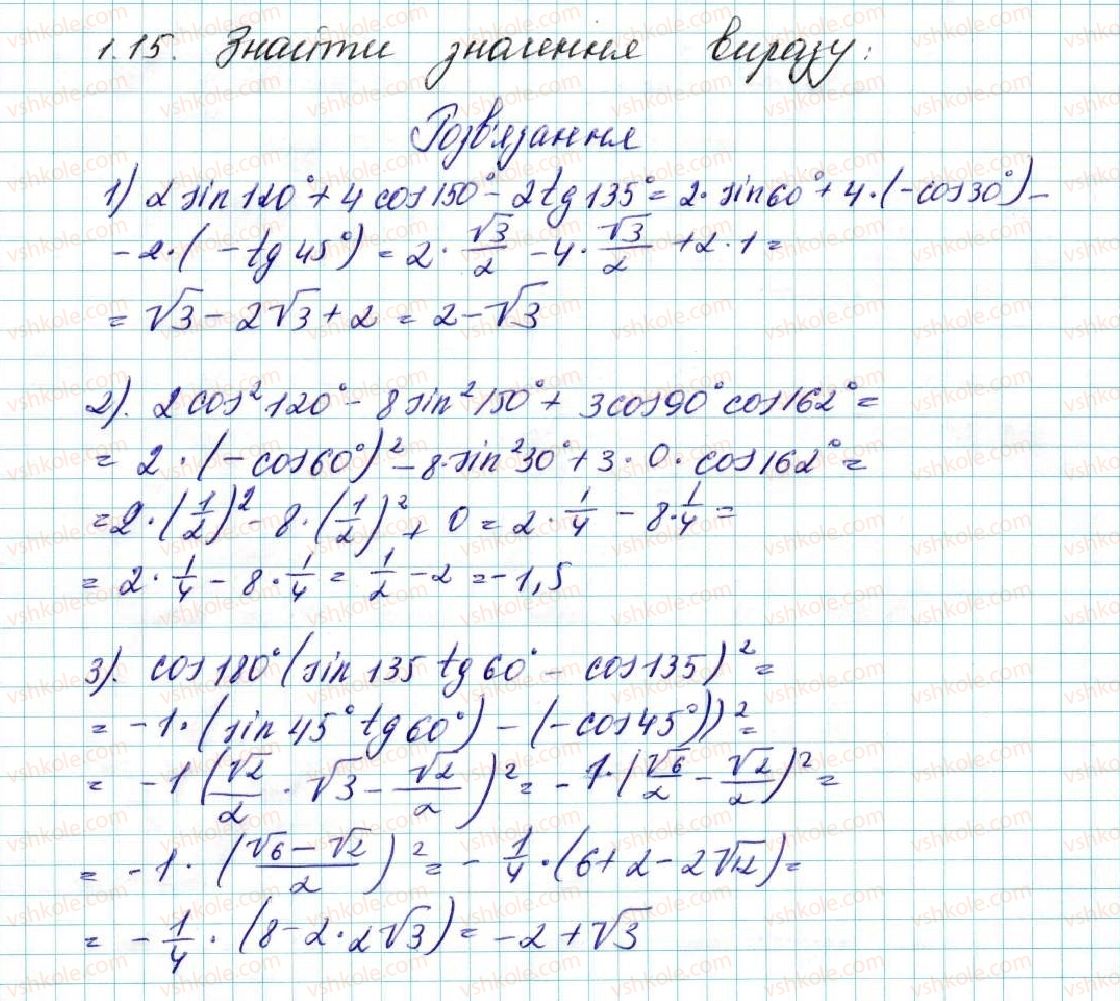 1.15. Знайти значення виразу:
Розв'язання
1) 2 sin 120° + 4 cos 150° - 2 tg 135° = 2 · sin 60° + 4 · (-cos 30°) -
- 2 · ( - tg 45°) = 2 · √3/2 - 4 · √3/2 + 2 · 1 =
= √3 - 2√3 + 2 = 2 - √3
2). 2 cos² 120° - 8 sin² 150° + 3 cos 90° cos 162° =
= 2 · (-cos 60°)² - 8 · sin² 30° + 3 · 0 · cos 162° =
= 2 · (1/2)² - 8 · (1/2)² + 0 = 2 · 1/4 - 8 · 1/4 =
= 2 · 1/4 - 8 · 1/4 = 1/2 - 2 = -1,5
3). cos 180° (sin 135 tg 60° - cos 135)² =
= -1 · (sin 45° tg 60°) - (-cos 45°))² =
= -1 (√2/2 · √3 - √2/2)² = -1 · (√6/2 - √2/2)² =
= -1 · ((√6 - √2)/2)² = - 1/4 · (6 + 2 - 2√12) =
= - 1/4 · (8 - 2 · 2√3) = -2 + √3